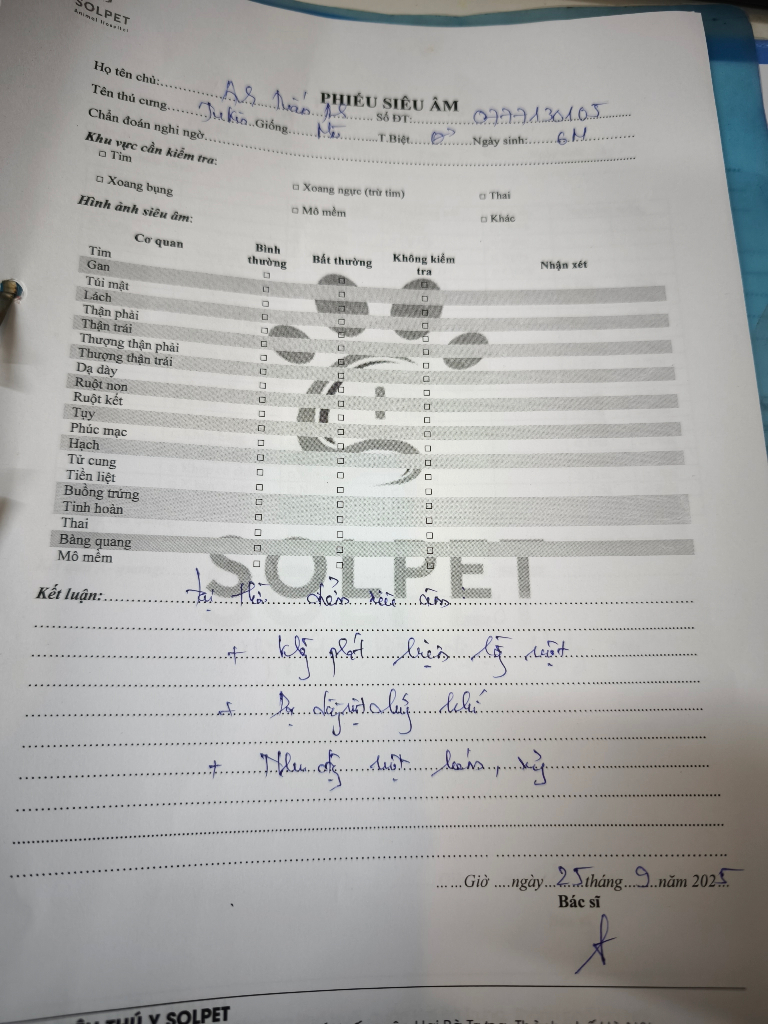 SOLPET
Animal Hospital
PHIẾU SIÊU ÂM
Họ tên chủ: Số ĐT: 0777130105
Tên thú cưng Giống T.Biệt Ngày sinh: 6M
Chẩn đoán nghi ngờ
Khu vực cần kiểm tra:
□ Tim □ Xoang ngực (trừ tim) □ Thai
□ Xoang bụng □ Mô mềm □ Khác
Hình ảnh siêu âm:
Cơ quan Bình thường Bất thường Không kiểm tra Nhận xét
Tim □ □ □
Gan □ □ □
Túi mật □ □ □
Lách □ □ □
Thận phải □ □ □
Thận trái □ □ □
Thượng thận phải □ □ □
Thượng thận trái □ □ □
Dạ dày □ □ □
Ruột non □ □ □
Ruột kết □ □ □
Tụy □ □ □
Phúc mạc □ □ □
Hạch □ □ □
Tử cung □ □ □
Tiền liệt □ □ □
Buồng trứng □ □ □
Tinh hoàn □ □ □
Thai □ □ □
Bàng quang □ □ □
Mô mềm □ □ □
SOLPET
Kết luận: Tại thời điểm siêu âm
+ Kg phát hiện lồng ruột
+ Dạ dày ruột chứa khí
+ Nhu động ruột
Giờ ngày 25 tháng 9 năm 2025
Bác sĩ
THÚ Y SOLPET